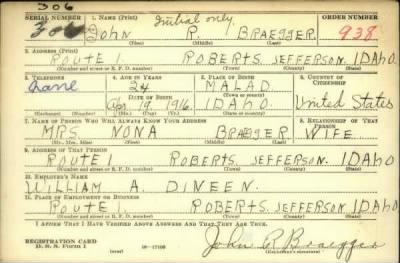 306
SERIAL NUMBER
1. NAME (Print)
Initial only.
ORDER NUMBER
306
John R. BRAEGGER
938.
(First) (Middle) (Last)
2. ADDRESS (Print)
ROUTE ROBERTS. JEFFERSON. IDAHO
(Number and street or R. F. D. number) (Town) (County) (State)
3. TELEPHONE
4. AGE IN YEARS
5. PLACE OF BIRTH
6. COUNTRY OF CITIZENSHIP
24
MALAD.
DATE OF BIRTH
(Town or county)
Apr. 19. 1916.
IDAHO.
United States
(Exchange) (Number)
(Mo.) (Day) (Yr.)
(State or country)
7. NAME OF PERSON WHO WILL ALWAYS KNOW YOUR ADDRESS
8. RELATIONSHIP OF THAT PERSON
MRS. NONA BRAEGGER WIFE
(Mr., Mrs., Miss) (First) (Middle) (Last)
9. ADDRESS OF THAT PERSON
ROUTE 1 ROBERTS. JEFFERSON. IDAHO
(Number and street or R. F. D. number) (Town) (County) (State)
10. EMPLOYER'S NAME
WILLIAM A. DINEEN.
11. PLACE OF EMPLOYMENT OR BUSINESS
ROUTE 1. ROBERTS. JEFFERSON. IDAHO
(Number and street or R. F. D. number) (Town) (County) (State)
I AFFIRM THAT I HAVE VERIFIED ABOVE ANSWERS AND THAT THEY ARE TRUE.
REGISTRATION CARD
D. S. S. Form 1
(over)
16—17105
John R Braegger
(Registrant's signature)